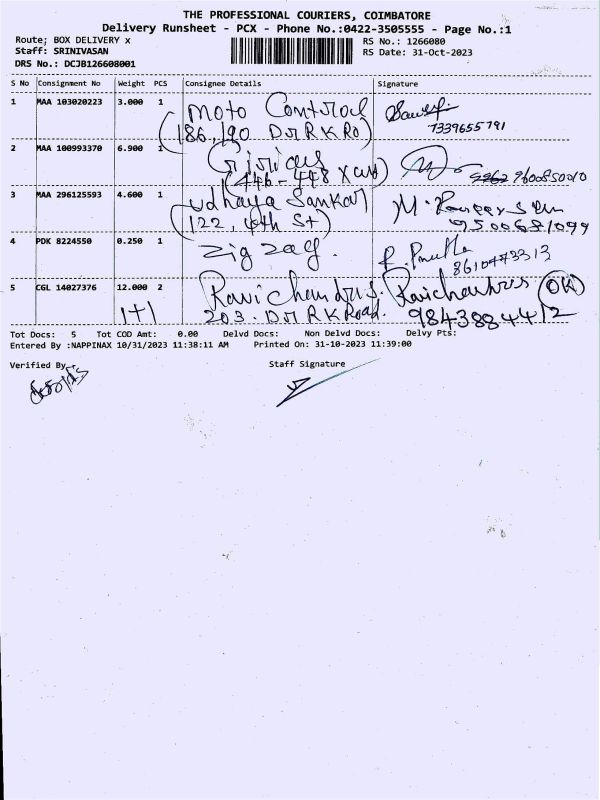 THE PROFESSIONAL COURIERS, COIMBATORE
Delivery Runsheet - PCX - Phone No.:0422-3505555 - Page No.:1
Route; BOX DELIVERY x RS No.: 1266080
Staff: SRINIVASAN RS Date: 31-Oct-2023
DRS No.: DCJB126608001
S No Consignment No Weight PCS Consignee Details Signature
1 MAA 103020223 3.000 1 Moto Control
(186,190 Dr R K Rd) 7339655791
2 MAA 100993370 6.900 1 Girias
(446-448 X cut) 9600850010
3 MAA 296125593 4.600 1 Udhaya Sankar
(122, 4th St) 9500681099
4 PDK 8224550 0.250 1 Zig zag.
8610473313
5 CGL 14027376 12.000 2 Ravichandrs. Ravichandrs OK
1+1 203. Dr R K Road. 9843884412
Tot Docs: 5 Tot COD Amt: 0.00 Delvd Docs: Non Delvd Docs: Delvy Pts:
Entered By :NAPPINAX 10/31/2023 11:38:11 AM Printed On: 31-10-2023 11:39:00
Verified By Staff Signature